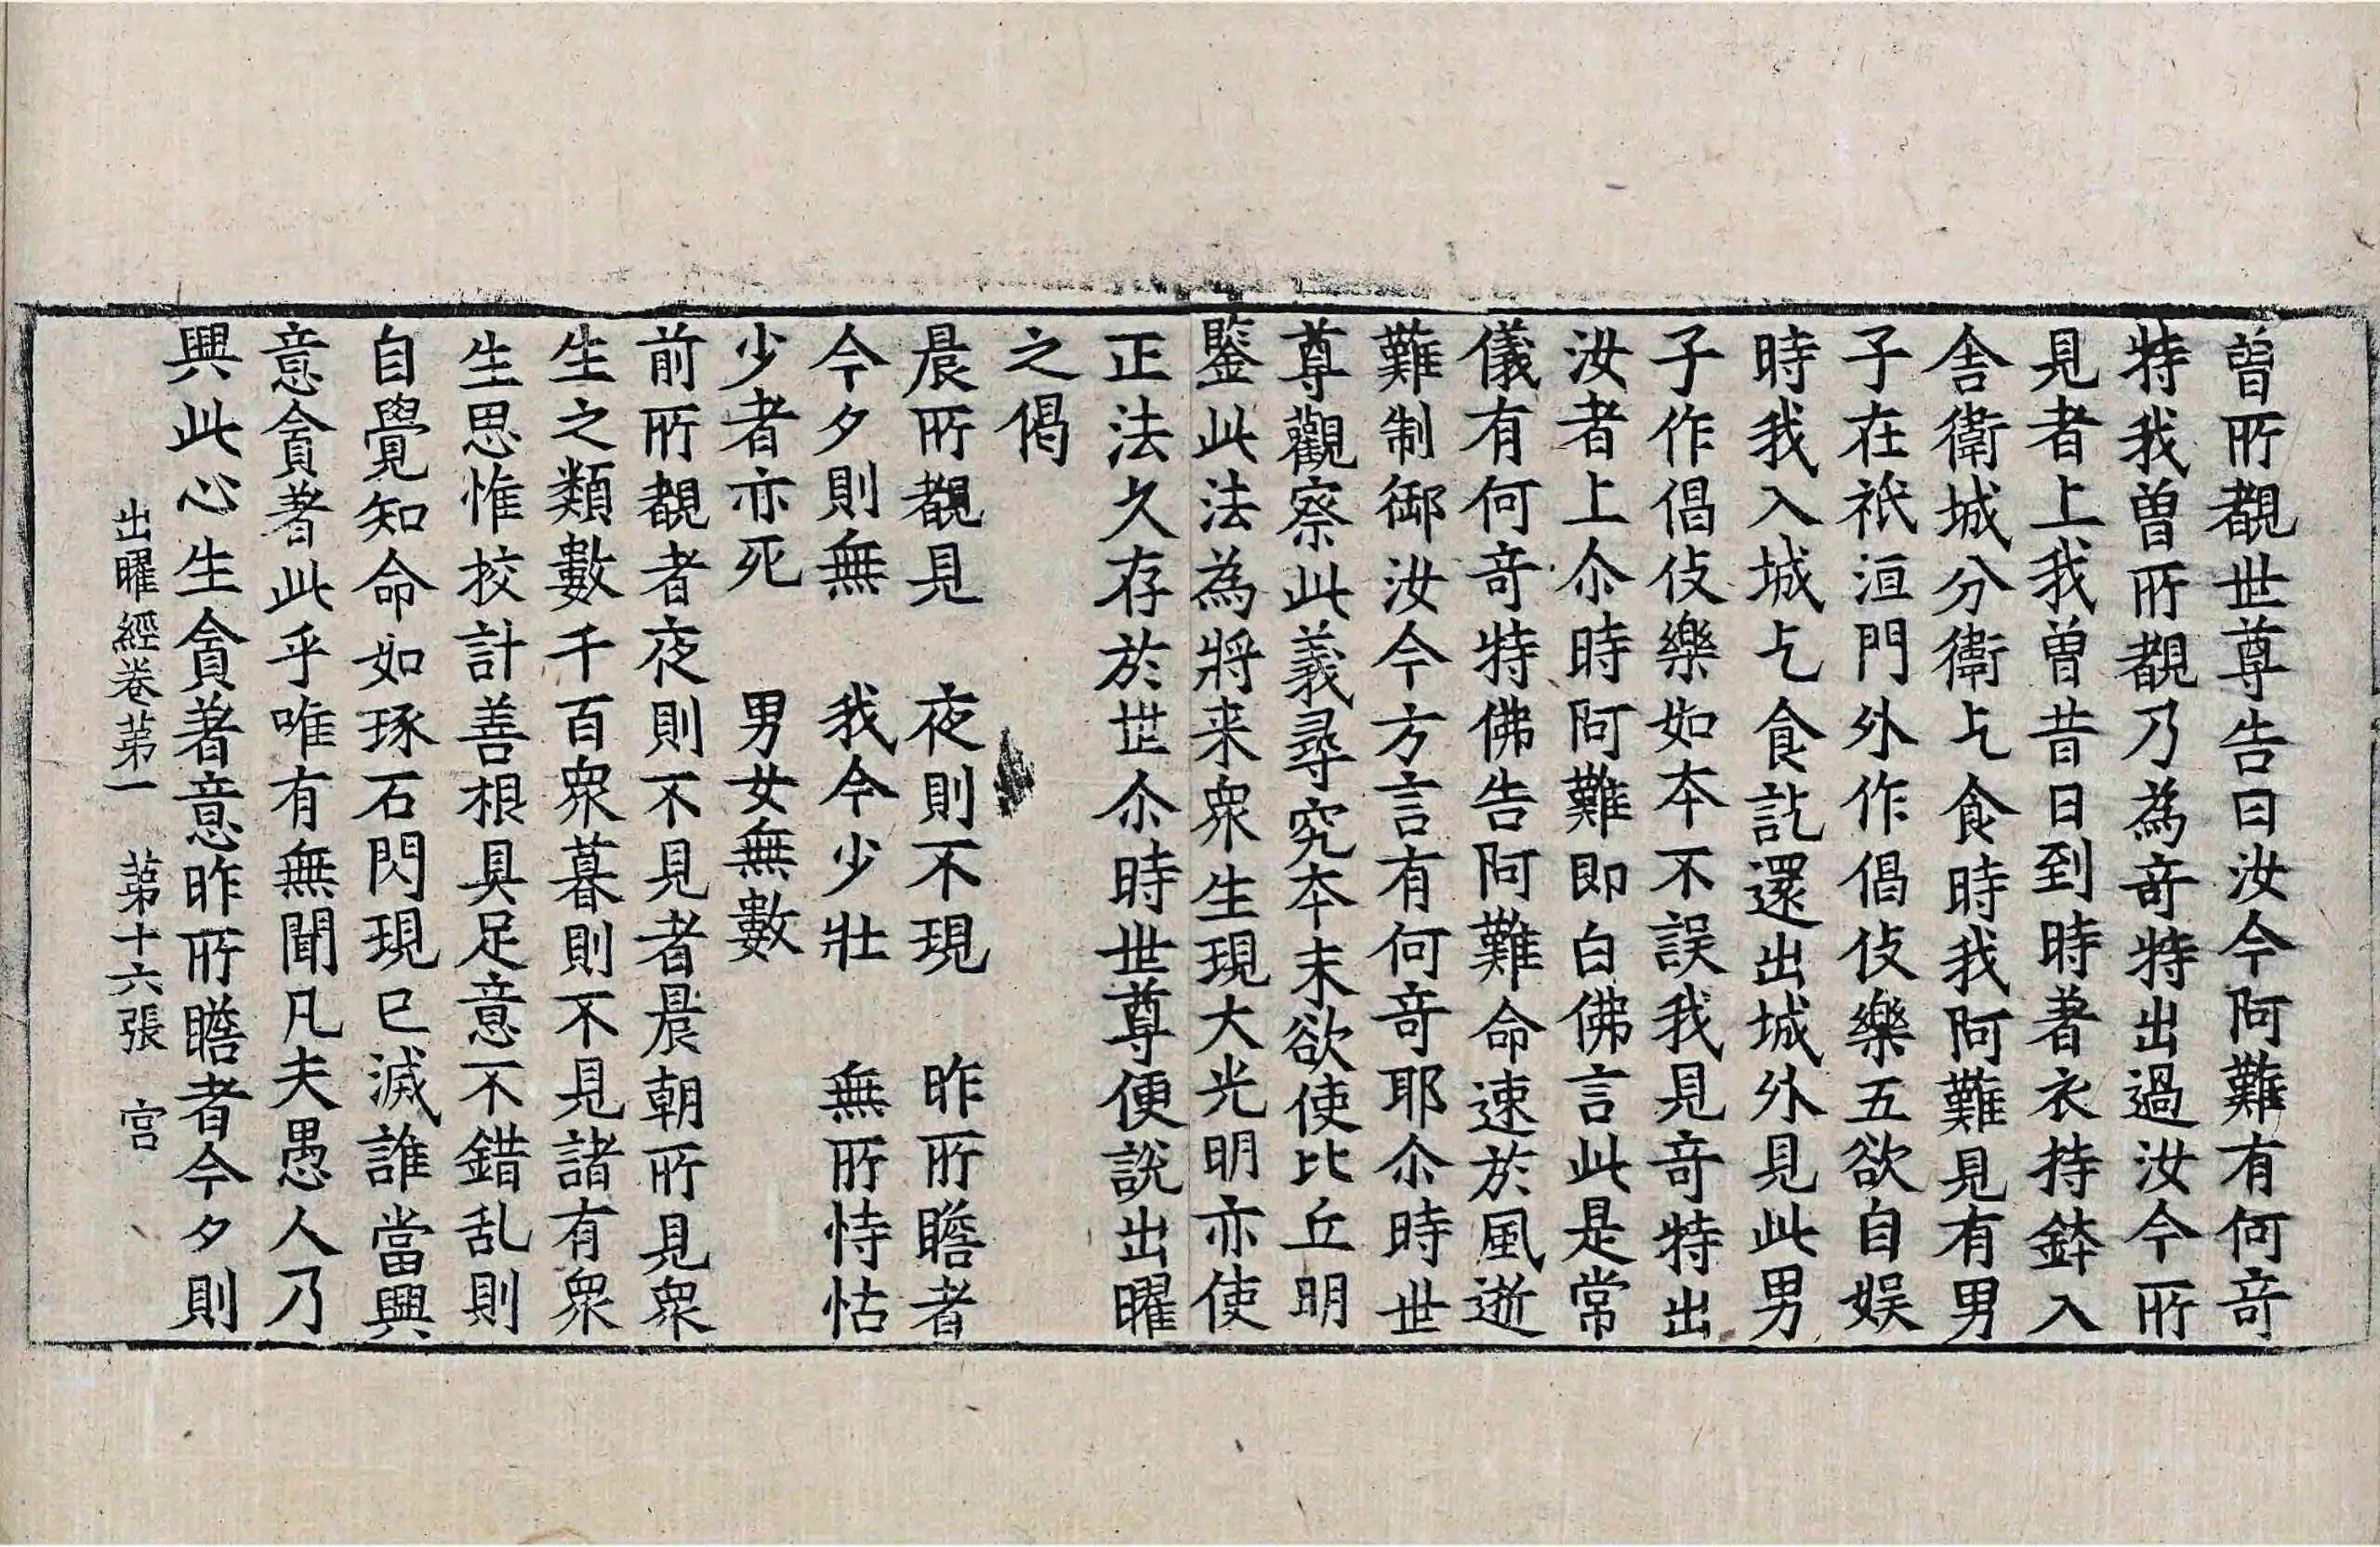 曽所覩世尊告曰汝今阿難有何竒
特我曽所覩乃為竒特出過汝今所
見者上我曽昔日到時著衣持鉢入
舎衛城分衛乞食時我阿難見有男
子在祇洹門外作倡伎樂五欲自娛
時我入城乞食訖還出城外見此男
子作倡伎樂如本不誤我見竒特出
汝者上尒時阿難即白佛言此是常
儀有何竒特佛告阿難命速於風逝
難制御汝今方言有何竒耶尒時世
尊觀察此義尋究本末欲使比丘明
鑒此法為將来衆生現大光明亦使
正法久存於世尒時世尊便說出曜
之偈
晨所覩見　夜則不現　昨所瞻者
今夕則無　我今少壯　無所恃怙
少者亦死　男女無數
前所覩者夜則不見者晨朝所見衆
生之類數千百衆暮則不見諸有衆
生思惟挍計善根具足意不錯乱則
自覺知命如琢石閃現已滅誰當興
意貪著此乎唯有無聞凡夫愚人乃
興此心生貪著意昨所瞻者今夕則
出曜經卷苐一　苐十六張　宫